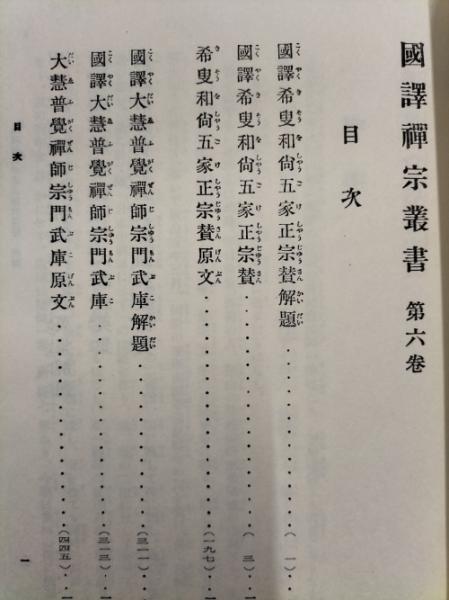 國譯禪宗叢書 第六卷
目次
國譯希叟和尙五家正宗贊解題……(一)
國譯希叟和尙五家正宗贊……(三)
希叟和尙五家正宗贊原文……(一九七)
國譯大慧普覺禪師宗門武庫解題……(三一一)
國譯大慧普覺禪師宗門武庫……(三一三)
大慧普覺禪師宗門武庫原文……(四四五)
目次
一